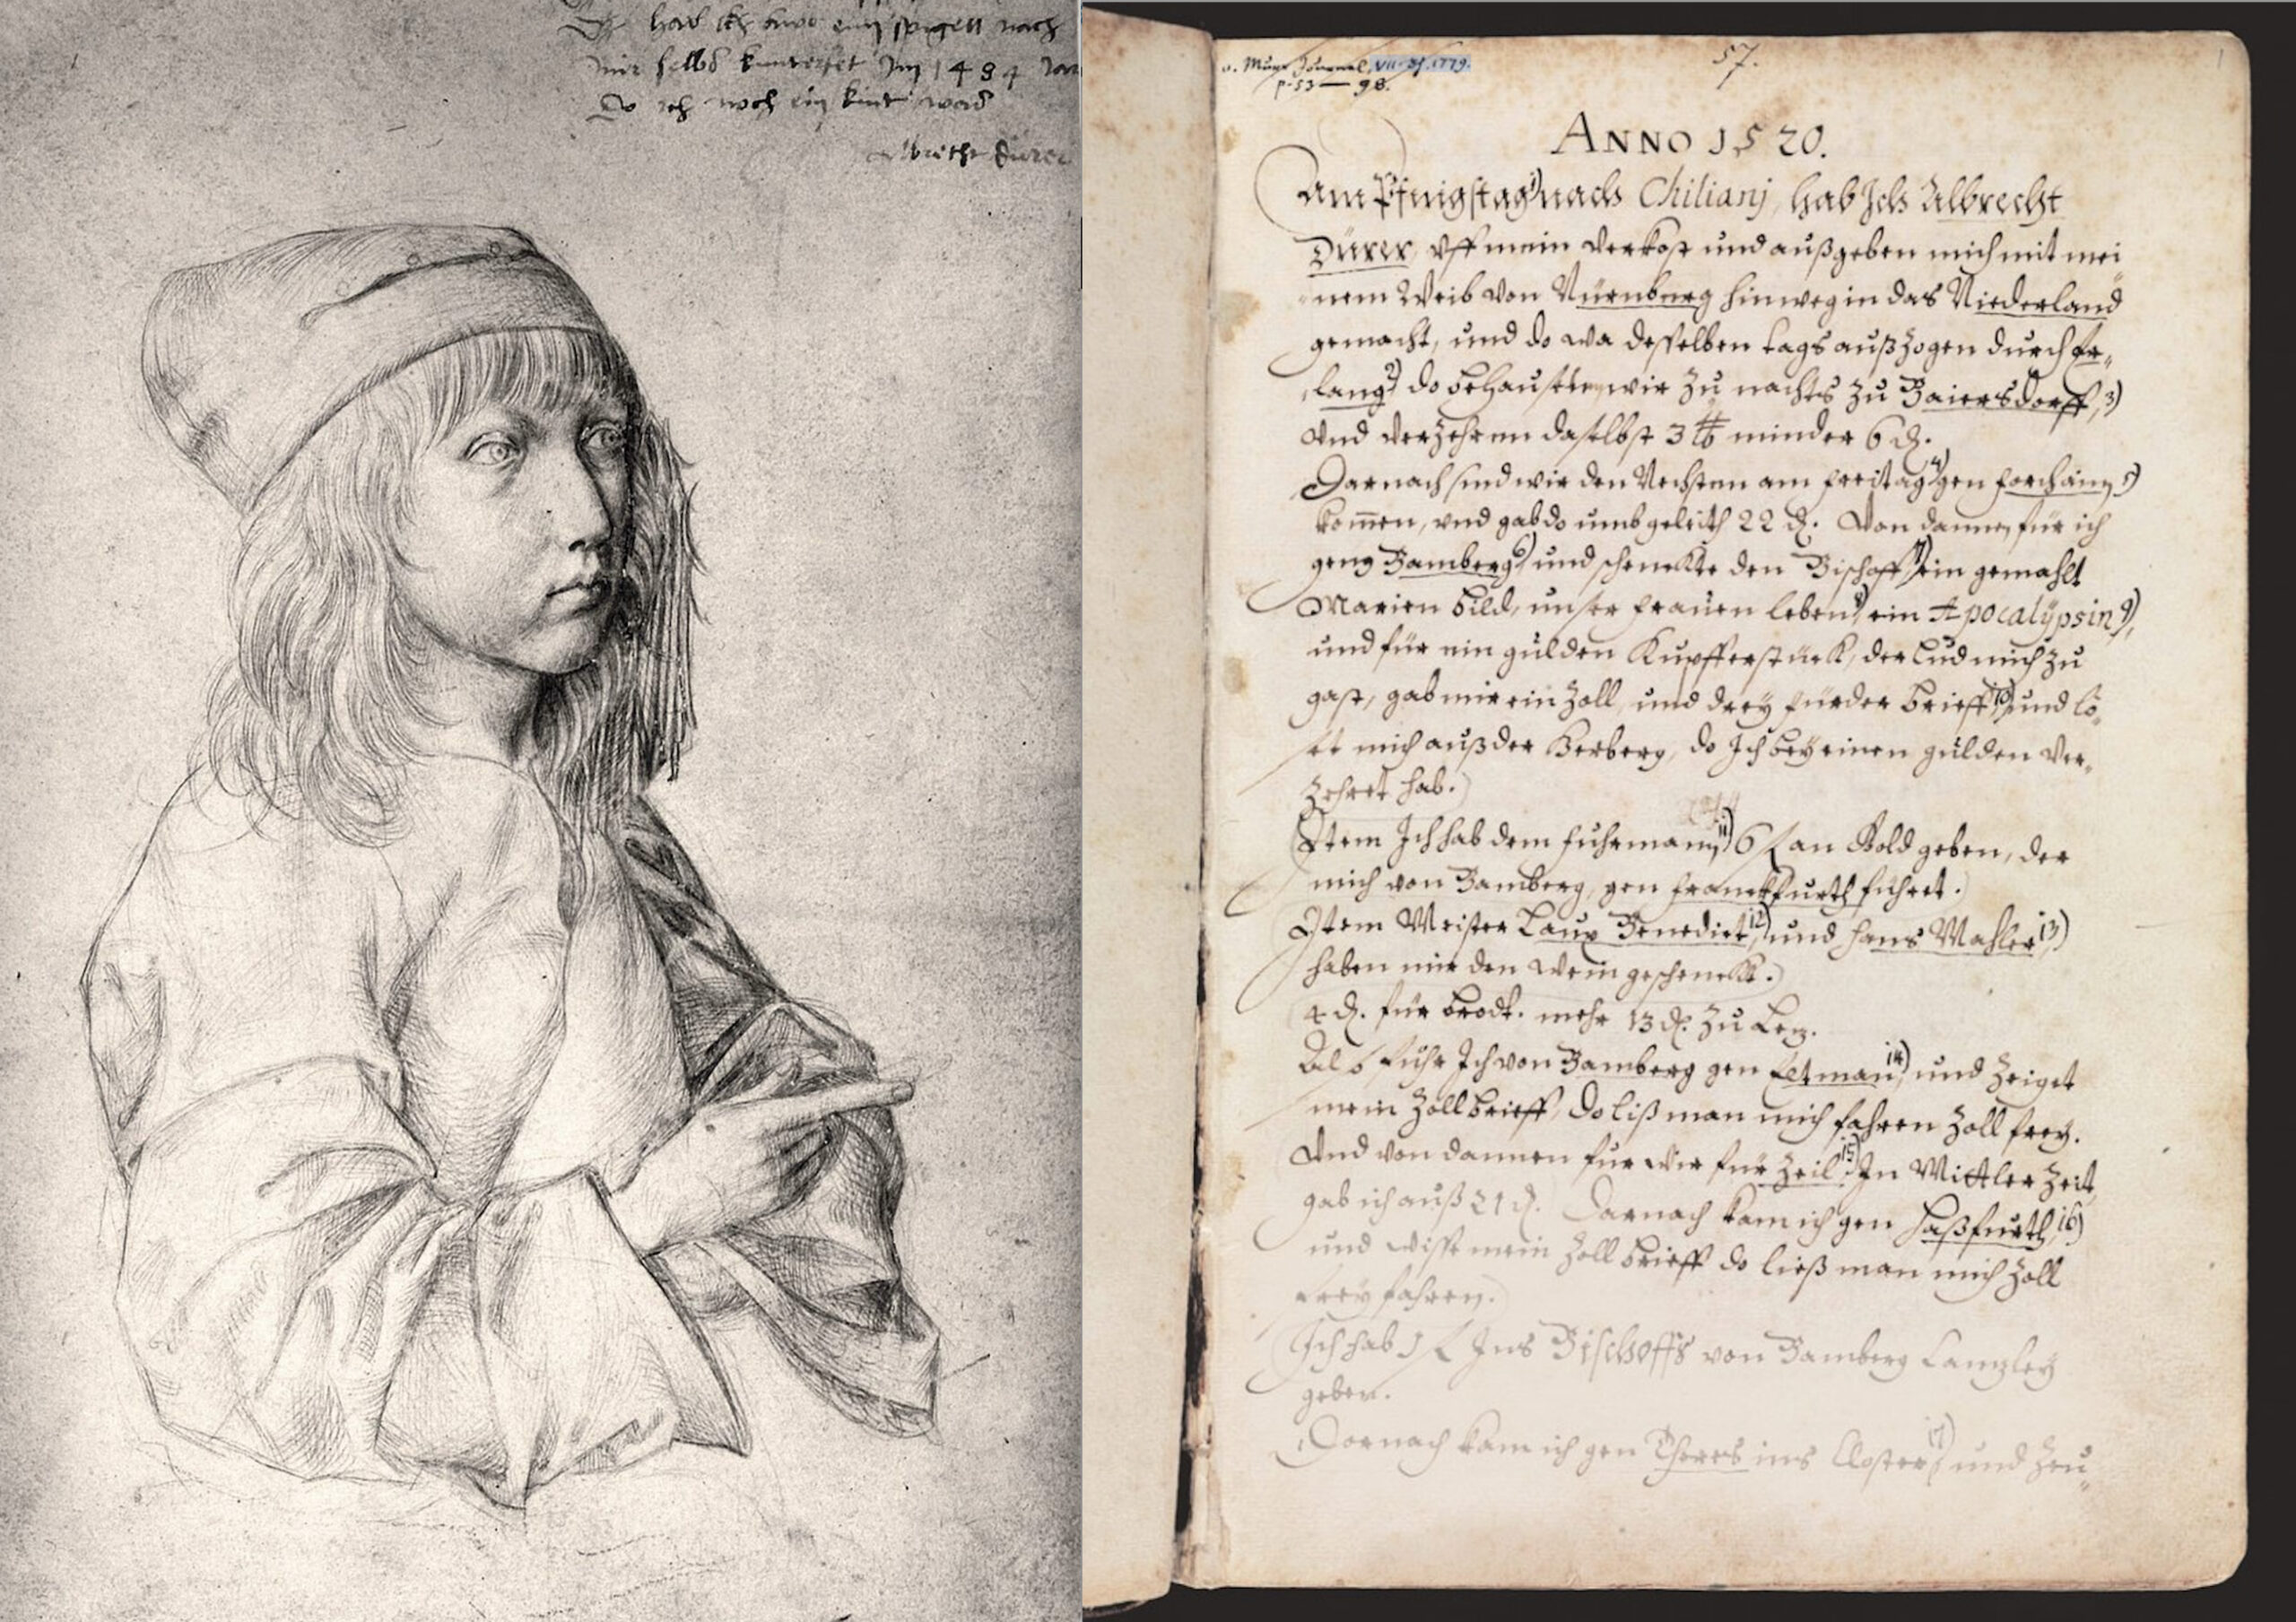 Dz hab Ich aws eim spigell nach
mir selbs kunterfet Im 1484 Jar
Do ich noch ein kint was
Albrecht Dürer
v. Murr Journal, VII. Th. 1779.
p. 53 — 98.
57.
1
ANNO 1520.
Am Pfingstag 1) nach Chilianj, hab Jch Albrecht
Dürer, vff mein verkost und außgeben mich mit mei
nem Weib von Nürnberg hinweg in das Niederland
gemacht, und do wa desselben tags außzogen durch Er„
lang 2) do behausten wir zu nachts zu Baiersdorff, 3)
vnd verzehrnn daselbst 3 ℔ minder 6 ₰.
Darnach sind wir den Nechstenn am freitag 4) gen forchaim 5)
kom̅en, vnd gab do umb geleith 22 ₰. Von dannen für ich
geng Bamberg 6) und schenckte den Bischoff 7) ein gemahlt
Marien bild, unser frauen leben 8) ein Apocalÿpsin 9),
und für ein gülden Kupfferstück, der lud mich zu
gast, gab mir ein Zoll, und dreÿ fürder brieff 10) und lö„
st mich auß der Herberg, do Jch beÿ einen gülden ver„
zehret hab.
Jtem Jch hab dem fuhrmann 11) 6 fl an Gold geben, der
mich von Bamberg, gen franckfurth führet.
Jtem Meister Laux Benedict 12) und Hans Mahler 13)
haben mir den wein geschenckt.
4 ₰. für brodt. mehr 13 ₰. zu Lez.
Also fuhr Jch von Bamberg gen Eltman 14) und zeiget
mein Zollbrieff, do liß man mich fahren Zoll freÿ.
Vnd von dannen fur wir für Zeil 15) Jn Mittler zeit
gab ich auß 21 ₰. Darnach kam ich gen Haßfurth 16)
und wiste mein Zoll brieff do ließ man mich Zoll
freÿ fahren.
Jch hab 1 fl Jns Bischoffs von Bamberg Canzleÿ
geben.
Dornach kam ich gen Therrs ins Closter 17) und zeu„